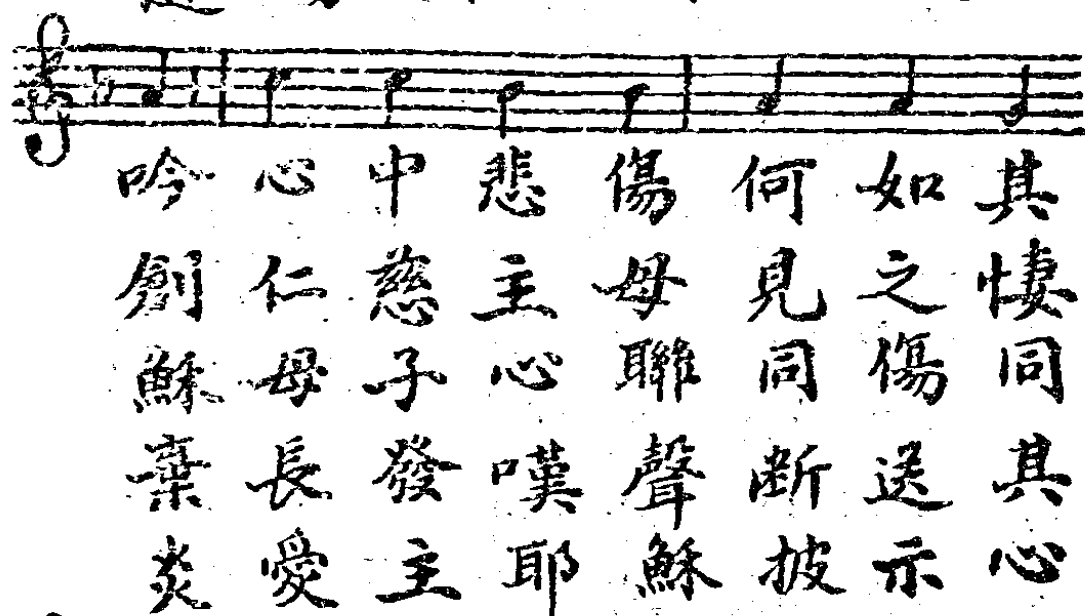 吟心中悲傷何如其
創仁慈主母見之悽
穌母子心聯同傷同
棄長發嘆聲断送其
炎愛主耶穌披示心